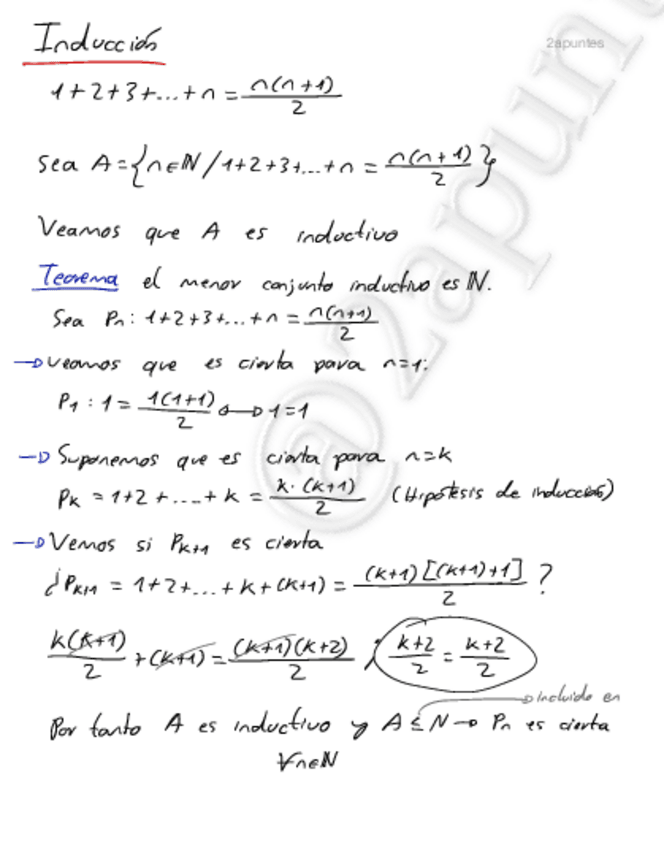 Inducción
2apuntes
1+2+3+...+n = n(n+1)/2
Sea A = {n∈ℕ / 1+2+3+...+n = n(n+1)/2}
Veamos que A es inductivo
Teorema el menor conjunto inductivo es ℕ.
Sea Pn: 1+2+3+...+n = n(n+1)/2
→ Veamos que es cierta para n=1:
P1 : 1 = 1(1+1)/2 ↔ 1=1
→ Suponemos que es cierta para n=k
Pk = 1+2+....+k = k·(k+1)/2 (Hipótesis de inducción)
→ Vemos si Pk+1 es cierta
¿Pk+1 = 1+2+...+k+(k+1) = (k+1)[(k+1)+1]/2 ?
k(k+1)/2 + (k+1) = (k+1)(k+2)/2 ; k+2/2 = k+2/2
→ Incluido en
Por tanto A es inductivo y A ⊆ N → Pn es cierta
∀n∈ℕ
@2apun